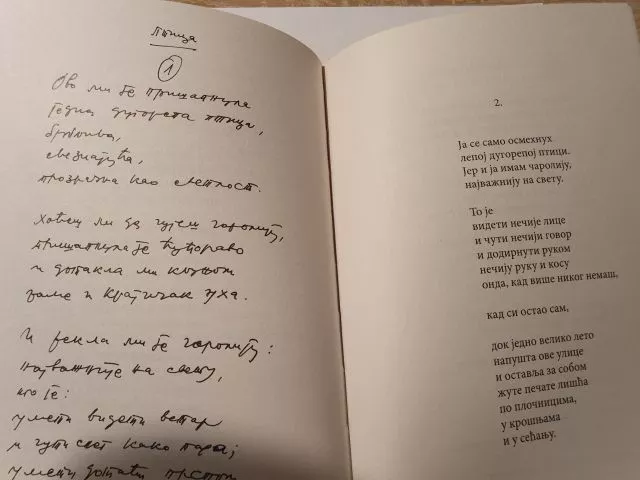 Птица
1
Ово ми је пришапнула
једна дугорепа птица,
брбљива,
свезнајућа,
прозрачна као светлост.
Хоћеш ли да чујеш чаролију,
пришапнула је ћућораво
и дотакла ми кљуном
раме и крајичак уха.
И рекла ми је чаролију:
најважније на свету,
то је:
умети видети ветар
и чути свет како пара;
умети дотаћи прстом
2.
Ја се само осмехнух
лепој дугорепој птици.
Јер и ја имам чаролију,
најважнију на свету.
То је
видети нечије лице
и чути нечији говор
и додирнути руком
нечију руку и косу
онда, кад више никог немаш,
кад си остао сам,
док једно велико лето
напушта ове улице
и оставља за собом
жуте печате лишћа
по плочницима,
у крошњама
и у сећању.